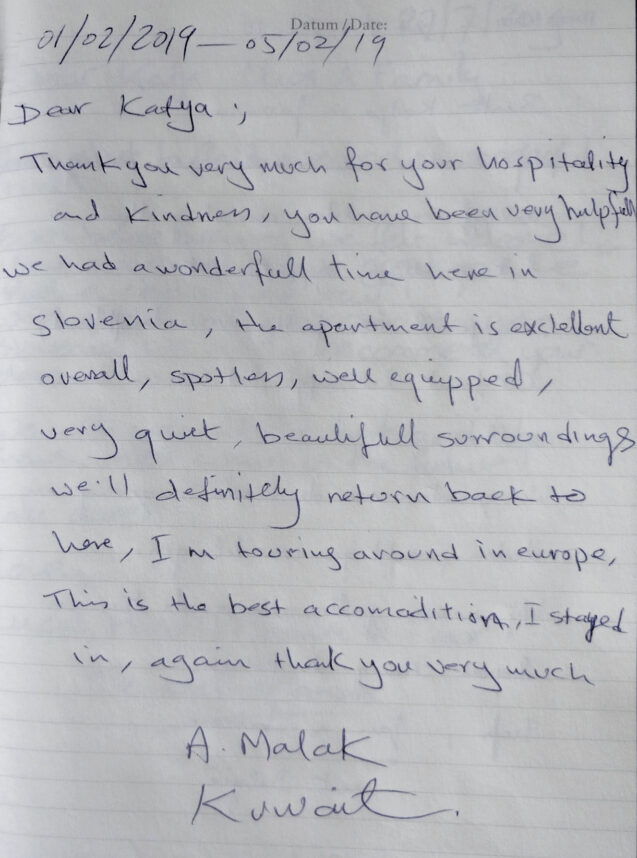 Datum/Date:
01/02/2019 — 05/02/19
Dear Katya :,
Thank you very much for your hospitality
and kindness, you have been very helpfull
we had a wonderfull time here in
Slovenia, the apartment is exclellent
overall, spotless, well equipped,
very quiet, beautifull surroundings
we'll definitely return back to
here, I m touring around in europe,
This is the best accomadition, I stayed
in, again thank you very much
A. Malak
Kuwait.